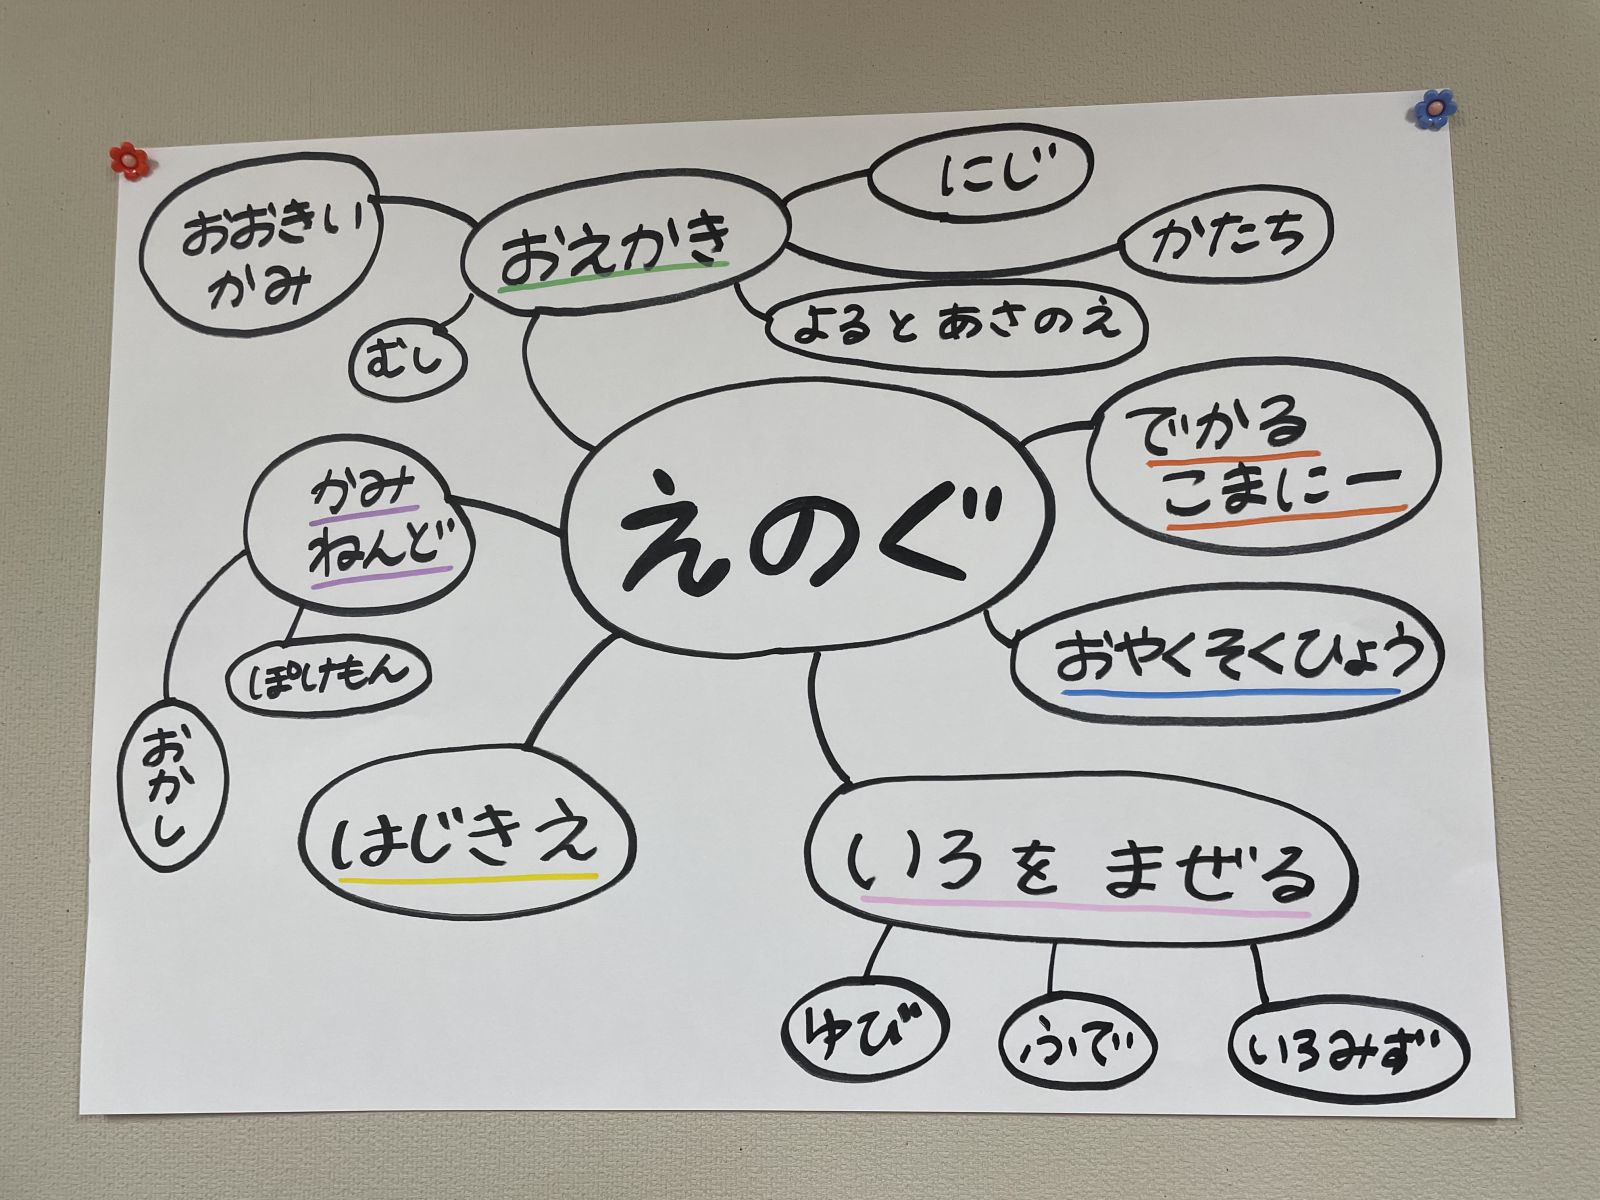 おおきい
かみ
おえかき
にじ
かたち
よるとあさのえ
むし
でかる
こまにー
かみ
ねんど
えのぐ
おやくそくひょう
ぽけもん
おかし
はじきえ
いろを まぜる
ゆび
ふで
いろみず